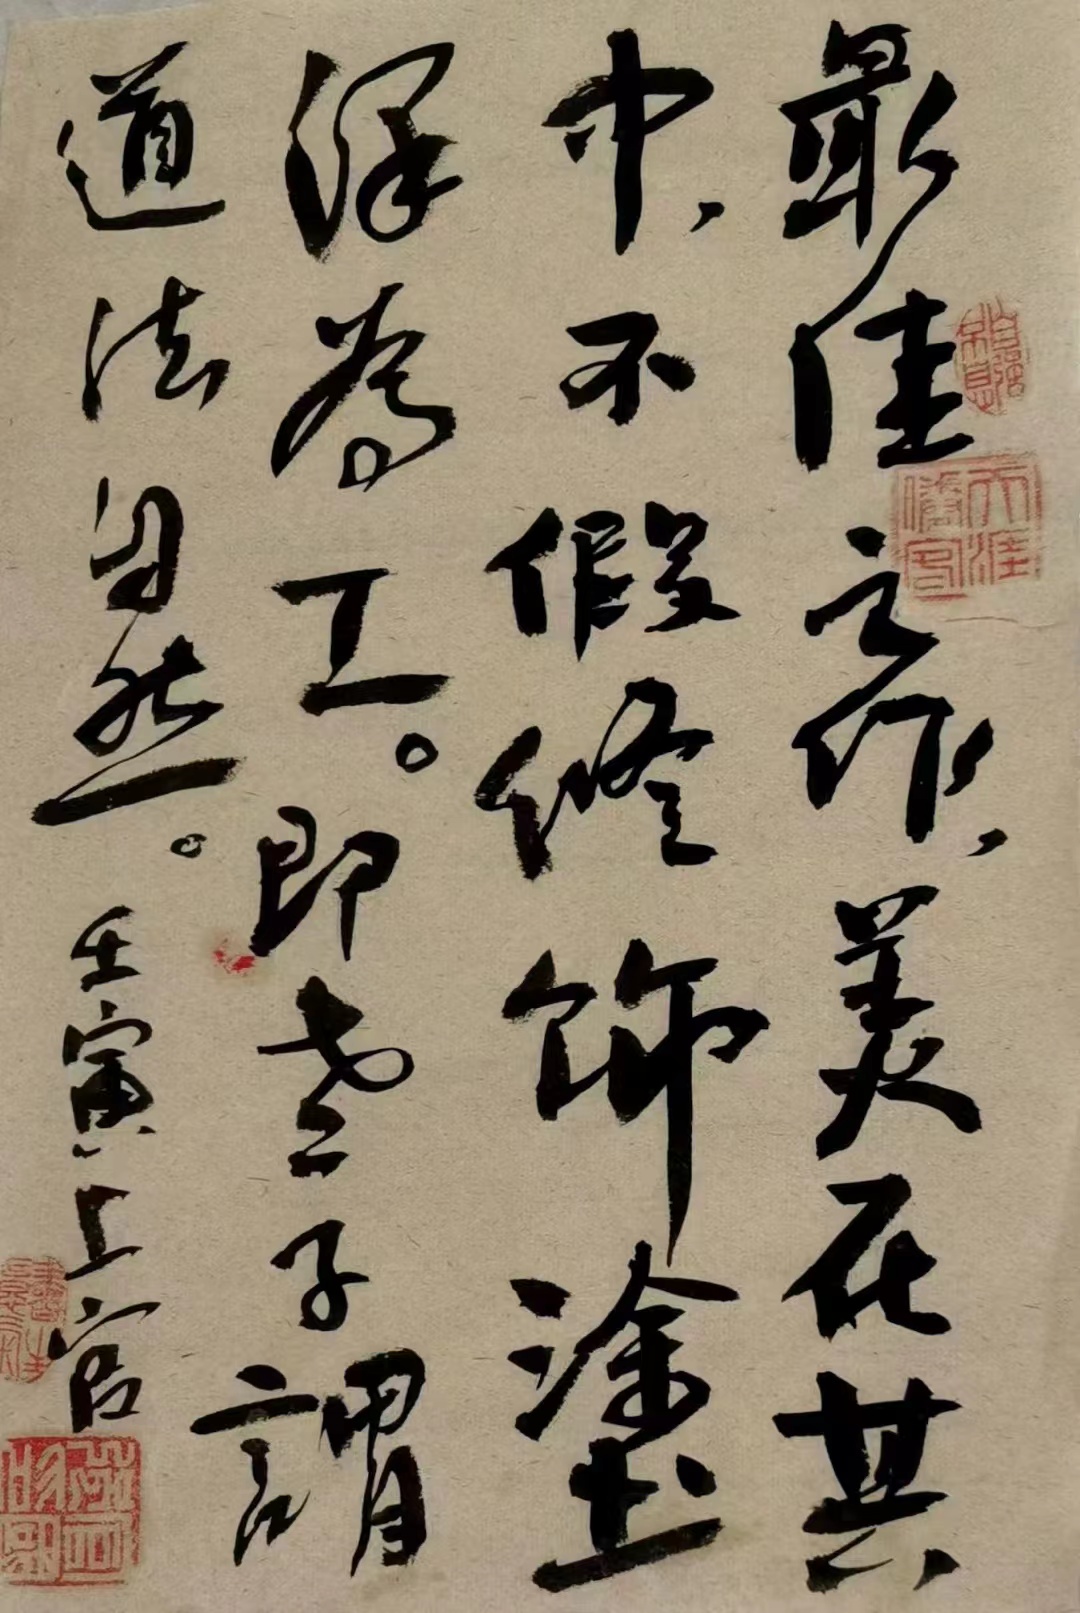 最佳之作、美在其
中、不假修飾塗
澤為工。即老子謂
道法自然。壬寅上官